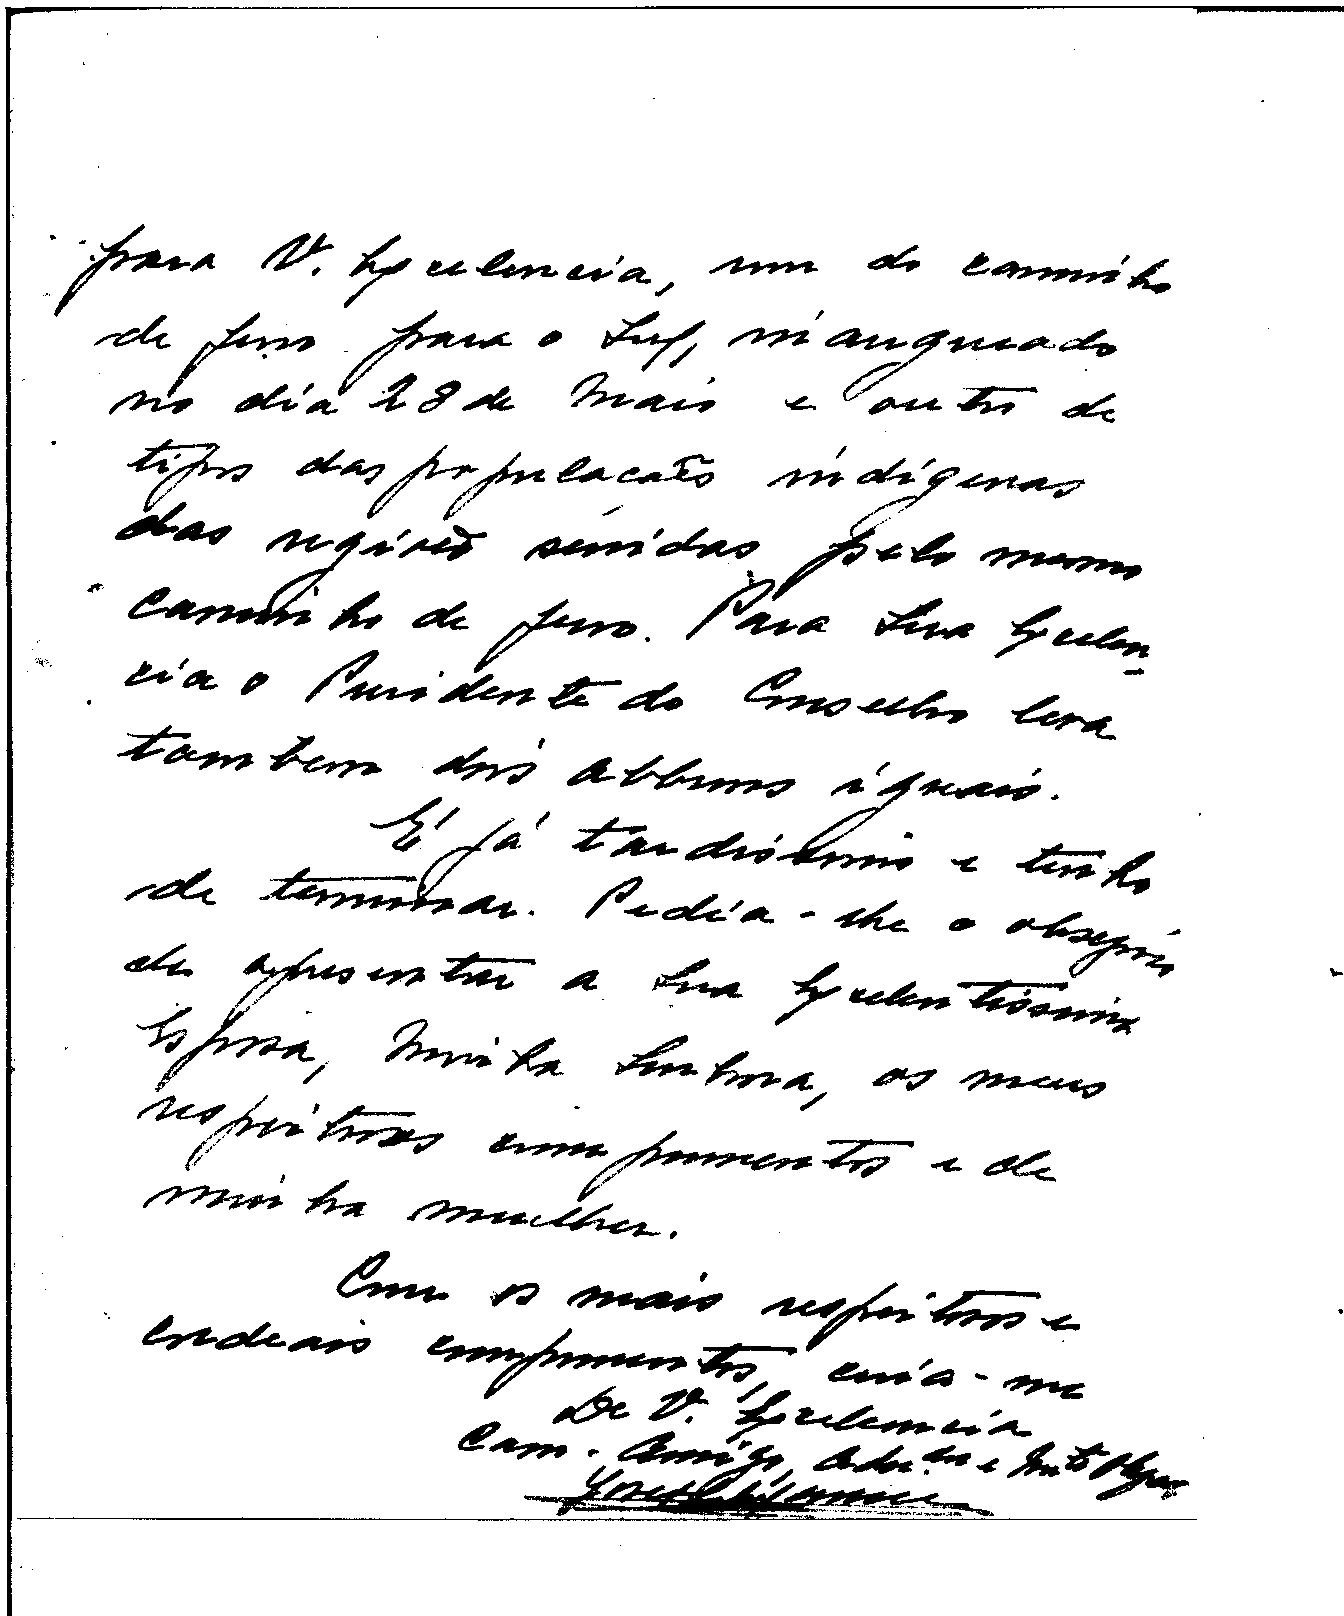 para V. Excelencia, um do caminho
de ferro para o Sul, inaugurado
no dia 28 de Maio e outro de
tipos das populacões indígenas
das regiões servidas pelo mesmo
caminho de ferro. Para Sua Excelen-
cia o Presidente do Conselho leva
tambem dois albuns iguais.
É já tardissimo e tenho
de terminar. Pedia-lhe o obsequio
de apresentar a Sua Excelentissima
Esposa, Minha Senhora, os meus
respeitosos cumprimentos e de
minha mulher.
Com os mais respeitosos e
cordeais cumprimentos, creia-me
De V. Excelencia
Cam. Amigo, e Mto